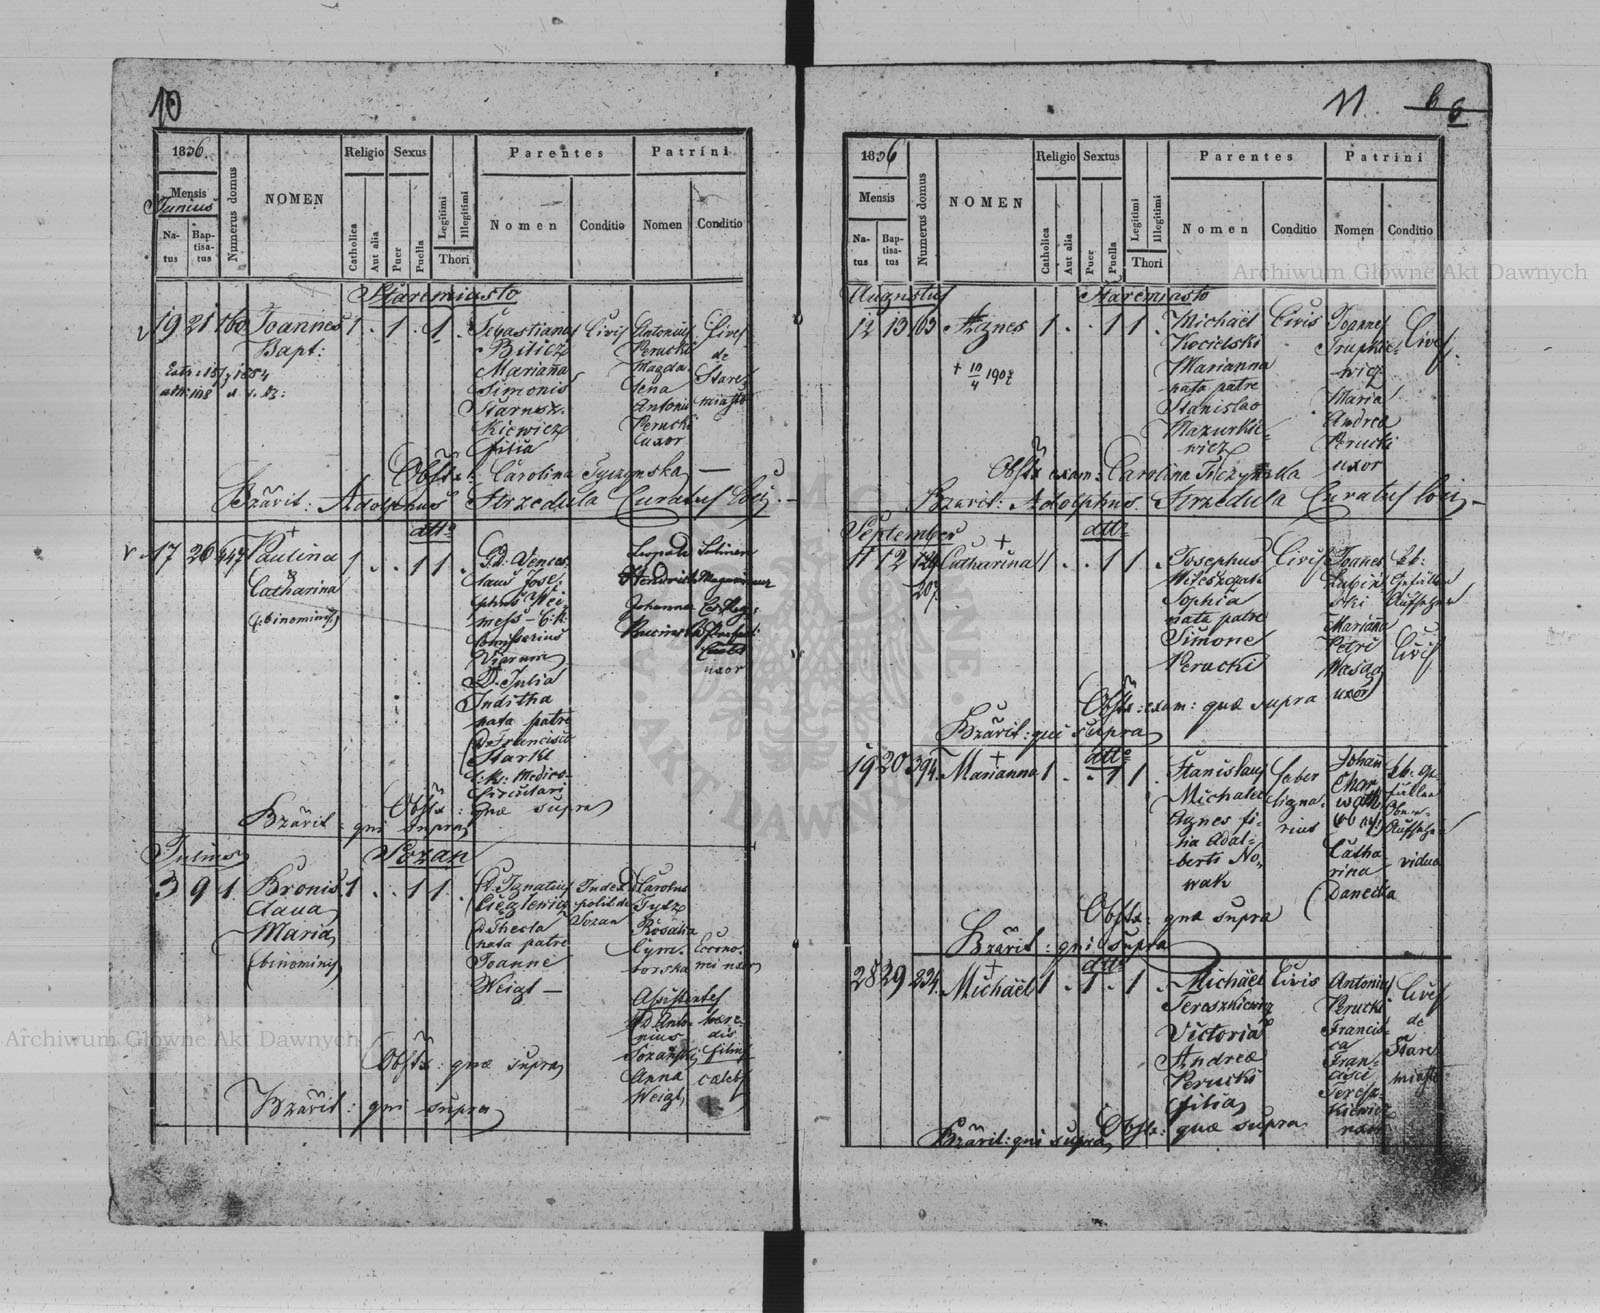 10
1836.
Mensis
Junius
Na-
tus
Bap-
tisa-
tus
Numerus domus
NOMEN
Religio
Catholica
Aut alia
Sexus
Puer
Puella
Legitimi
Illegitimi
Thori
Parentes
Nomen
Conditio
Patrini
Nomen
Conditio
Staremiasto
19 21 160 Joannes 1 . 1 . 1 .
Bapt:
Sebastianus
Marianna
Simonis
Starusz-
kiewicz
filia
Civis
Antonius
Perucki
Magda
lena
Antonii
Perucki
uxor
Cives
de
Stare
miasto
Obstx: Carolina Tyczynska
Bzavit: Adolphus Strzedula Curatus loci
dtto
17 26 447 Paulina 1 . . 1 1 .
Catharina
(binominis)
G.d. Wences
laus Jose-
phus Wei
mess - C:k:
Comissarius
Viarum
D. Julia
Juditha
nata patre
D. Francisco
Starke
C:k: Medico
Circulari
Leopold
Johanna
uxor
Obstx: quae supra
Bzavit: qui supra
Julius
Sozan
3 9 1. Bronis- 1 . . 1 1 .
lava
Maria
(binominis)
D. Ignatius
D. Thecla
nata patre
Joanne
Weigl
Judex
polit de
Sozan
D. Carolus
Tytz
Rosalia
Cym-
borska
Econo-
mi uxor
Assistentes
D. Anto-
nius
Sozański
Anna
Weigl
haere-
dis
filius
caelebs
Obstx: quae supra
Bzavit: qui supra
11. 6 6
1836
Mensis
Na-
tus
Bap-
tisa-
tus
Numerus domus
NOMEN
Religio
Catholica
Aut alia
Sextus
Puer
Puella
Legitimi
Illegitimi
Thori
Parentes
Nomen
Conditio
Patrini
Nomen
Conditio
Augustus
Staremiasto
12 13 63 Agnes 1 . . 1 1 .
+ 10/4 1907
Michaël
Kocielski
Marianna
nata patre
Stanislao
Mazurkie-
wicz
Civis
Joannes
Trupkie-
wicz
Maria
Andrea
Perucki
uxor
Cives
Obstx exam: Carolina Tyczynska
Bzavit: Adolphus Strzedula Curatus loci
September
dtto
11 12 Catharina 1 . . 1 1 .
207
Josephus
Sophia
nata patre
Simone
Perucki
Civis
Joannes
Łubiń
ski
Marianna
Petri
Wasag
uxor
kk:
Gefällen
Aufseher
Civis
Obstx: exam: quae supra
Bzavit: qui supra
dtto
19 20 394. Marianna 1 . . 1 1 .
Stanislaus
Michalec
Agnes fi-
lia Adal-
berti No-
wak
faber
ligna-
rius
Johan
Char
wath
Catha
rina
Danecka
kk: Ge-
fällen
Ober-
Aufseher
vidua
Obstx: quae supra
Bzavit: qui supra
dtto
28 29 234. Michaël 1 . 1 . 1 .
Michaël
Teraszkiewicz
Victoria
Andreae
Perucki
filia
Civis
Antonius
Perucki
Francis-
ca
Fran-
cisci
Terasz-
kiewicz
uxor
Cives
de
Stare
miasto
Obstx: quae supra
Bzavit: qui supra
Archiwum Główne Akt Dawnych
Archiwum Główne Akt Dawnych